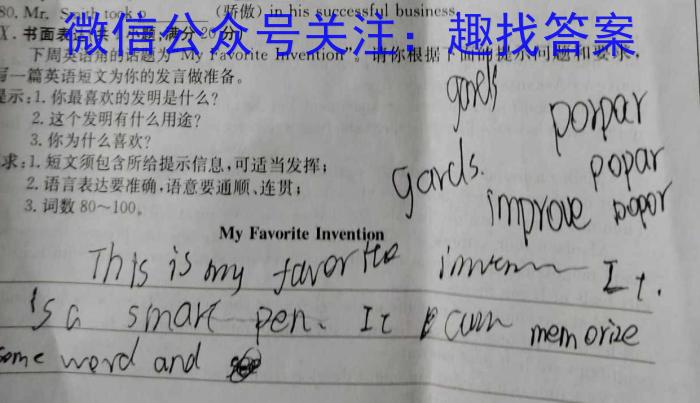 80. Mr. Smith took a ______ (骄傲) in his successful business.
X. 书面表达(共1小题,满分20分)
微信公众号关注:趣找答案
下周英语角的话题为“My Favorite Invention”。请你根据下面的提示问题和要求,
写一篇英语短文为你的发言做准备。
提示:1. 你最喜欢的发明是什么?
2. 这个发明有什么用途?
3. 你为什么喜欢?
要求:1. 短文须包含所给提示信息,可适当发挥;
2. 语言表达要准确,语意要通顺、连贯;
3. 词数80~100。
porpar
popar
gards.
improve popor
My Favorite Invention
This is my It.
is a smart pen. It can memorize
some word and